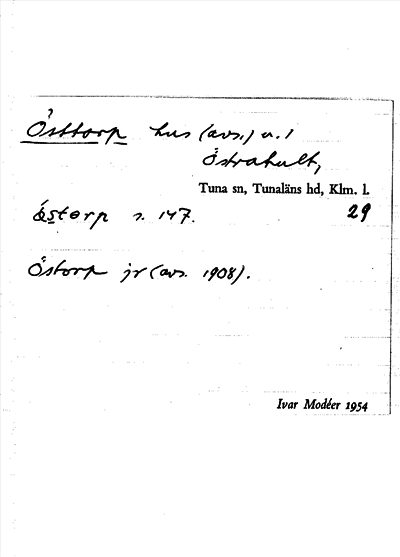 Östtorp hus (avs.) u. 1
Östrahult,
Tuna sn, Tunaläns hd, Klm. l.
östorp s. 147. 29
Östorp jr (avs. 1908).
Ivar Modéer 1954